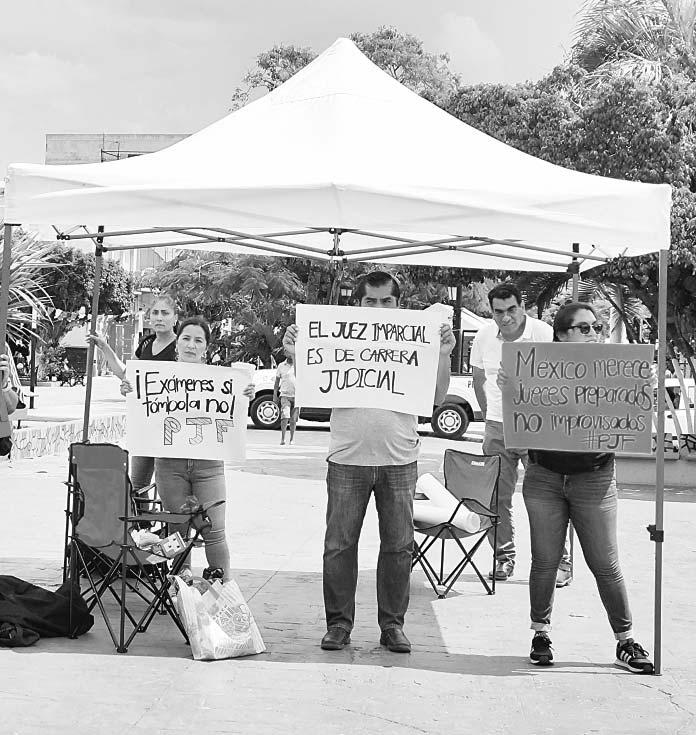 ¡Exámenes si
tómbola no!
PJF
EL JUEZ IMPARCIAL
ES DE CARRERA
JUDICIAL
Mexico merece
jueces preparados
no improvisados
#PJF